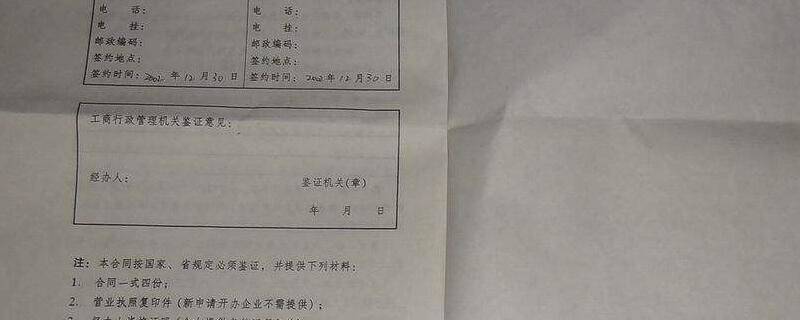 电 话： 电 话：
电 挂： 电 挂：
邮政编码： 邮政编码：
签约地点： 签约地点：
签约时间：2002 年 12 月 30 日 签约时间：2002 年 12 月 30 日
工商行政管理机关鉴证意见：
经办人： 鉴证机关(章)
年 月 日
注：本合同按国家、省规定必须鉴证，并提供下列材料：
1. 合同一式四份；
2. 营业执照复印件（新申请开办企业不需提供）；
3.